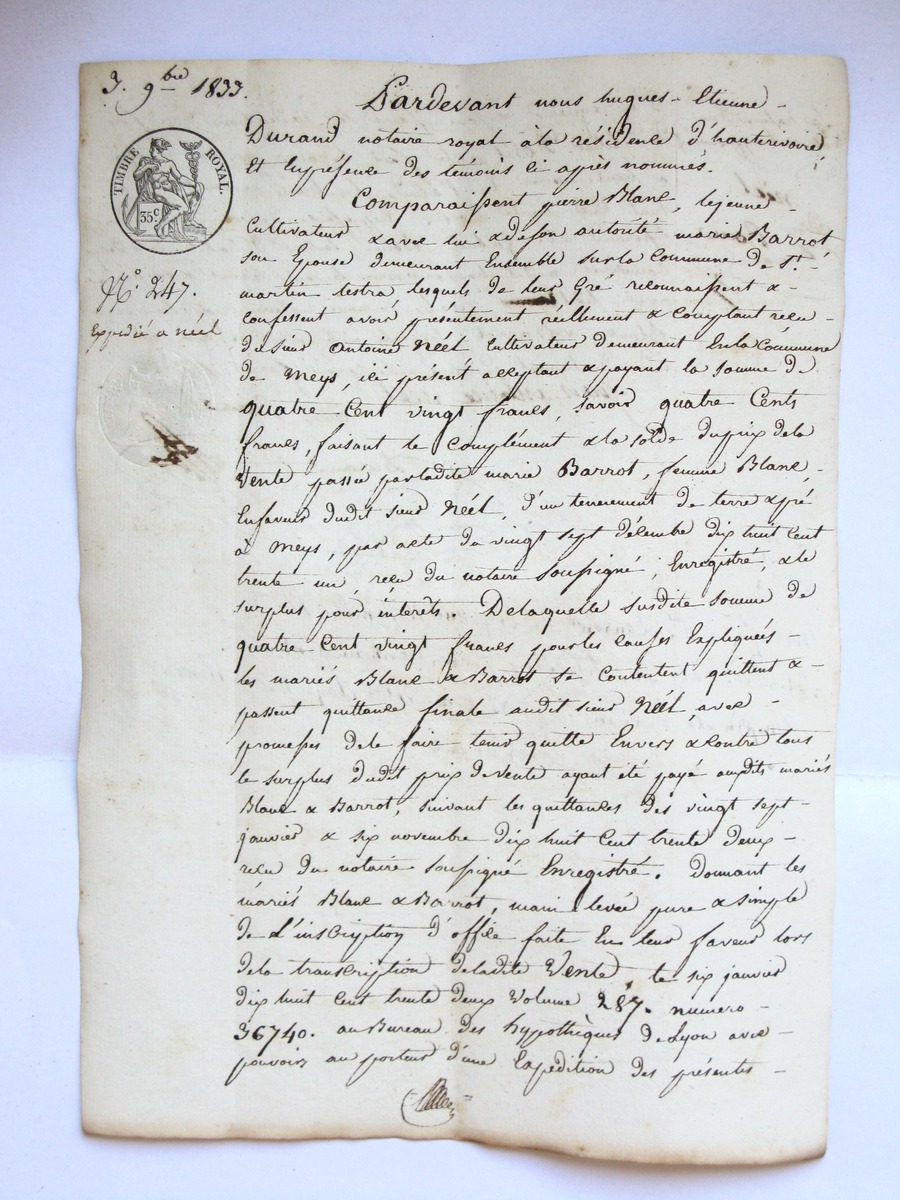 3. 9bre 1833.
TIMBRE ROYAL.
35c
N.o 247.
Expédié a Néel
Pardevant nous hugues-Etienne -
Durand notaire royal à la résidence d'hauterivoire
Et En présence des témoins ci après nommés.
Comparaissent pierre Blanc, lejeune -
Cultivateur & avec lui & de son autorité marie Barrot
son Epouse demeurant Ensemble sur la Commune de St.-
martin lestra lesquels de leur Gré reconnaissent &
confessent avoir présentement réellement & Comptant reçu -
du sieur Antoine Néel Cultivateur demeurant En la Commune
de Meys, ici présent acceptant & payant la somme de
quatre Cent vingt francs, savoir quatre Cents
francs, faisant le Complément & la solde du prix de la
Vente passée par ladite marie Barrot, femme Blanc,
En faveur dudit sieur Néel, d'un tenement de terre & pré
à Meys, par acte du vingt sept décembre dix huit cent
trente un, reçu du notaire soussigné, Enregistré, & le
surplus pour intérêts. De laquelle susdite somme de
quatre Cent vingt francs pour les causes Expliquées -
les mariés Blanc & Barrot se Contentent quittent & -
passent quittance finale audit sieur Néel, avec -
promesses de le faire tenir quitte Envers & contre tous
le surplus dudit prix de vente ayant été payé auxdits mariés
Blanc & Barrot, suivant les quittances des vingt sept -
janvier & six novembre dix huit Cent trente deux -
reçu du notaire soussigné Enregistré. Donnant les
mariés Blanc & Barrot, main levée pure & simple
de L'inscription d'office faite En leur faveur lors
de la transcription de ladite Vente, le six janvier
dix huit cent trente deux Volume 287. numero -
36740. au Bureau des hypothèques de Lyon avec -
pouvoir au porteur d'une Expédition des présentes -